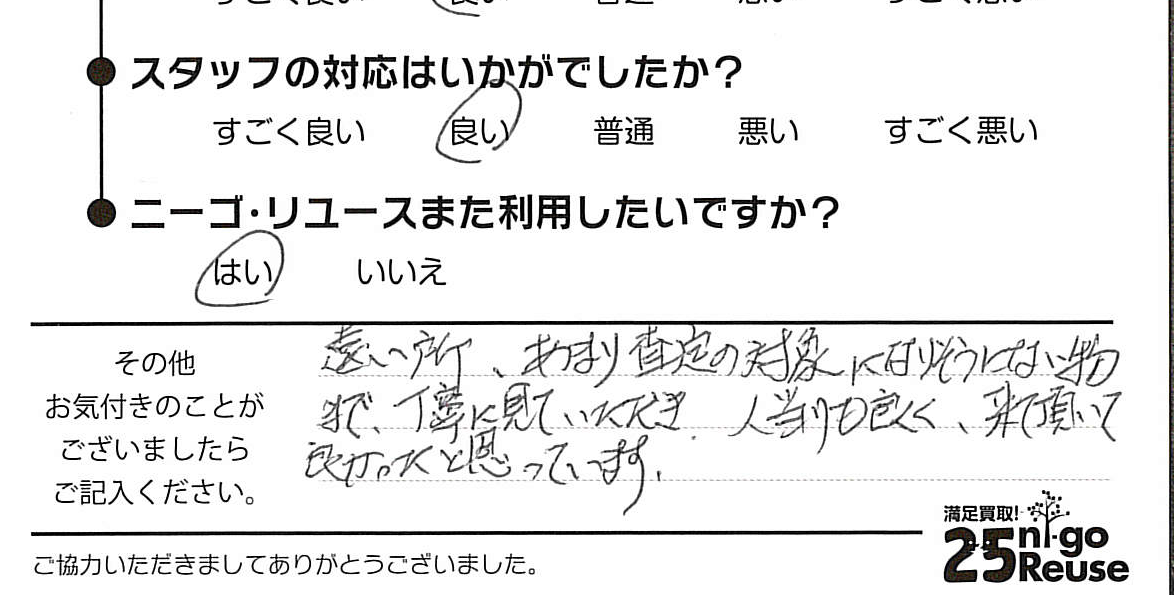 すごく良い 良い 普通 悪い すごく悪い
スタッフの対応はいかがでしたか?
すごく良い 良い 普通 悪い すごく悪い
ニーゴ・リユースまた利用したいですか?
はい いいえ
その他
お気付きのことが
ございましたら
ご記入ください。
遠い所、あまり査定の対象にはなりそうにない物
まで、丁寧に見ていただき、人当りも良く、来て頂いて
良かったと思っています。
満足買取!
25 ni-go
Reuse
ご協力いただきましてありがとうございました。